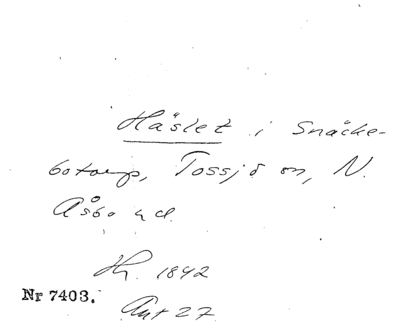 Håslet i Snäcke-
botorp, Tossjö sn, N.
Åsbo hd.
Hr. 1842
Nr 7403.
Ant 27